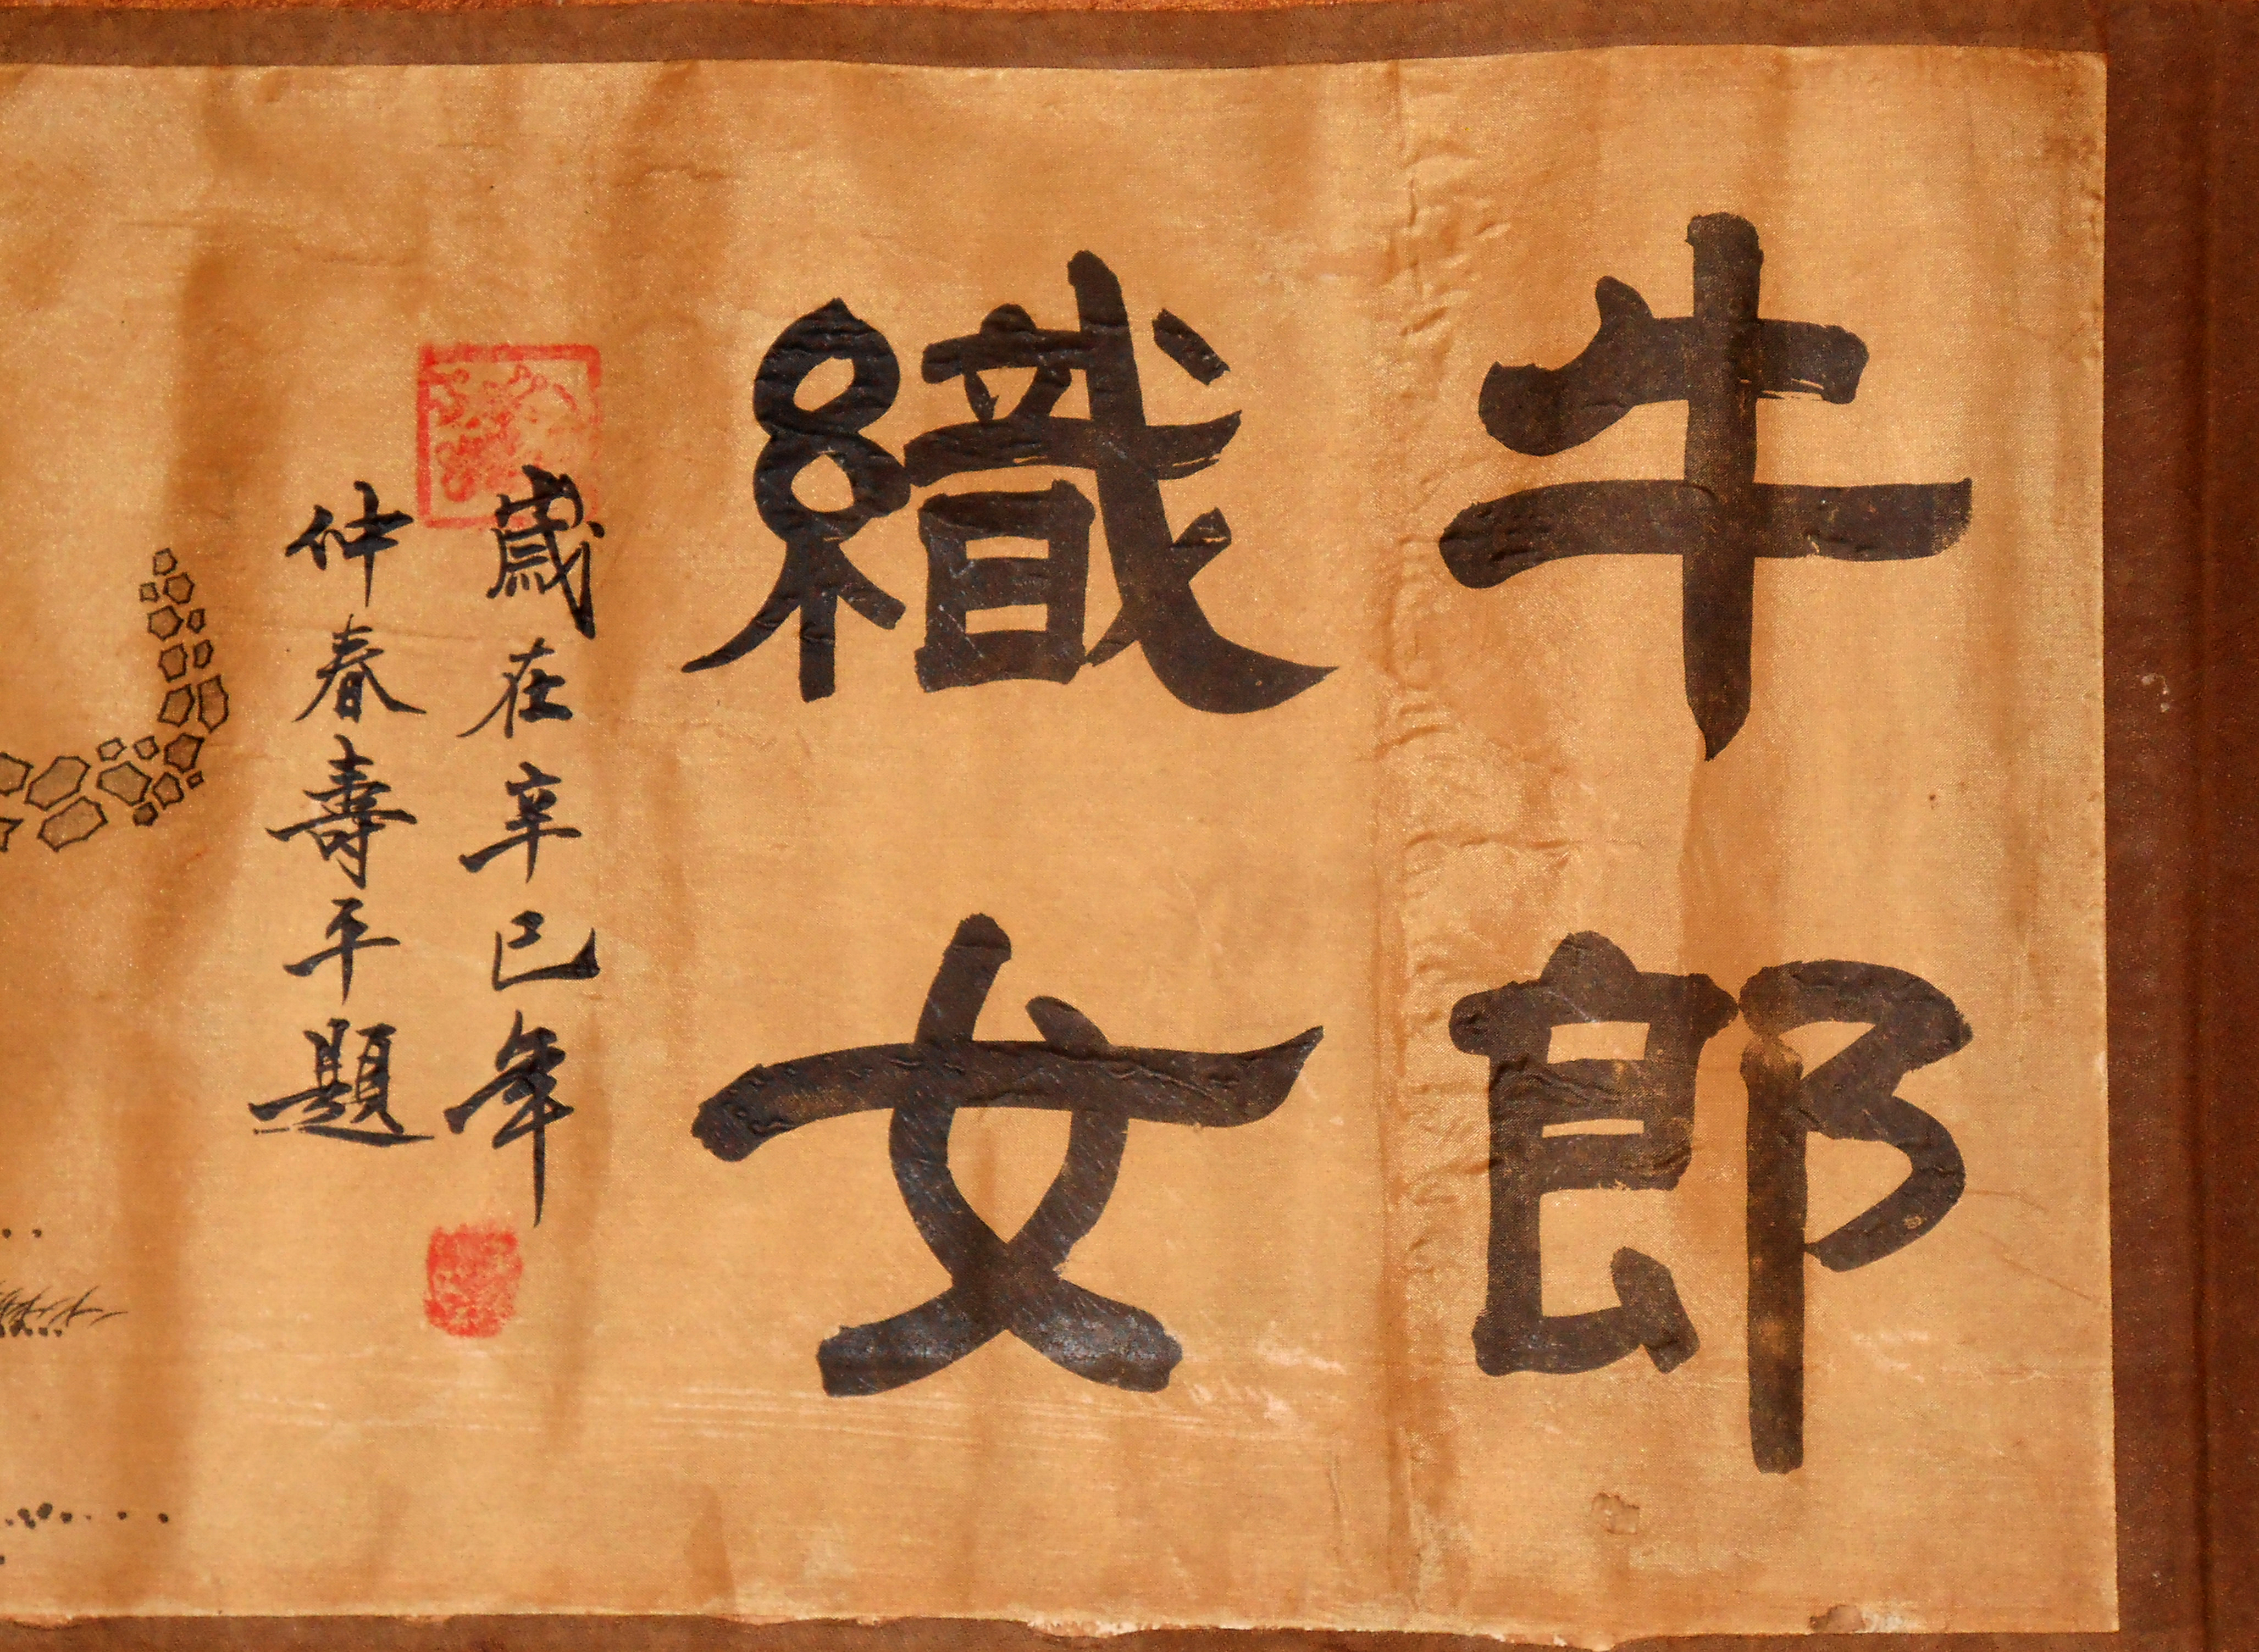 牛郎
織女
歲在辛巳年
仲春壽平題